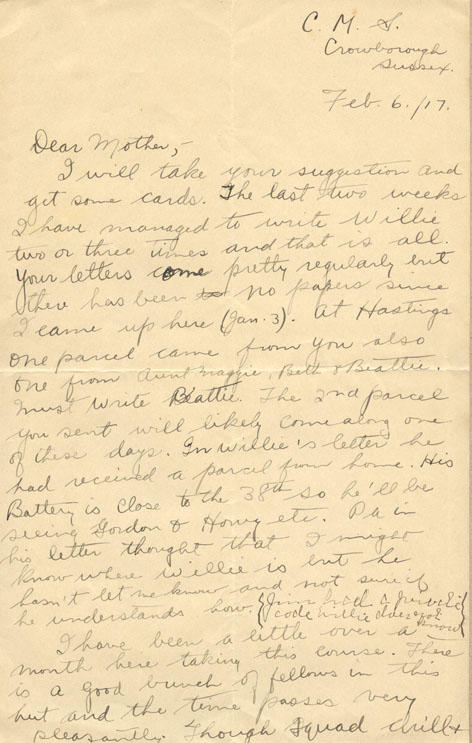 C. M. S.
Crowborough
Sussex.
Feb. 6./17.
Dear Mother,-
I will take your suggestion and
get some cards. The last two weeks
I have managed to write Willie
two or three times and that is all.
Your letters come pretty regularly but
there has been no papers since
I came up here (Jan. 3). At Hastings
one parcel came from you also
one from Aunt Maggie, Beth & Beattie.
Must write Beattie. The 2nd parcel
you sent will likely come along one
of these days. In Willie's letter he
had received a parcel from home. His
Battery is close to the 38th so he'll be
seeing Gordon & Howy etc. Pa in
his letter thought that I might
know where Willie is but he
hasn't let me know and not sure if
he understands how. {Jim had a
code Willie does not
know}
I have been a little over a
month here taking this course. There
is a good bunch of fellows in this
hut and the time passes very
pleasantly. Though squad drill &